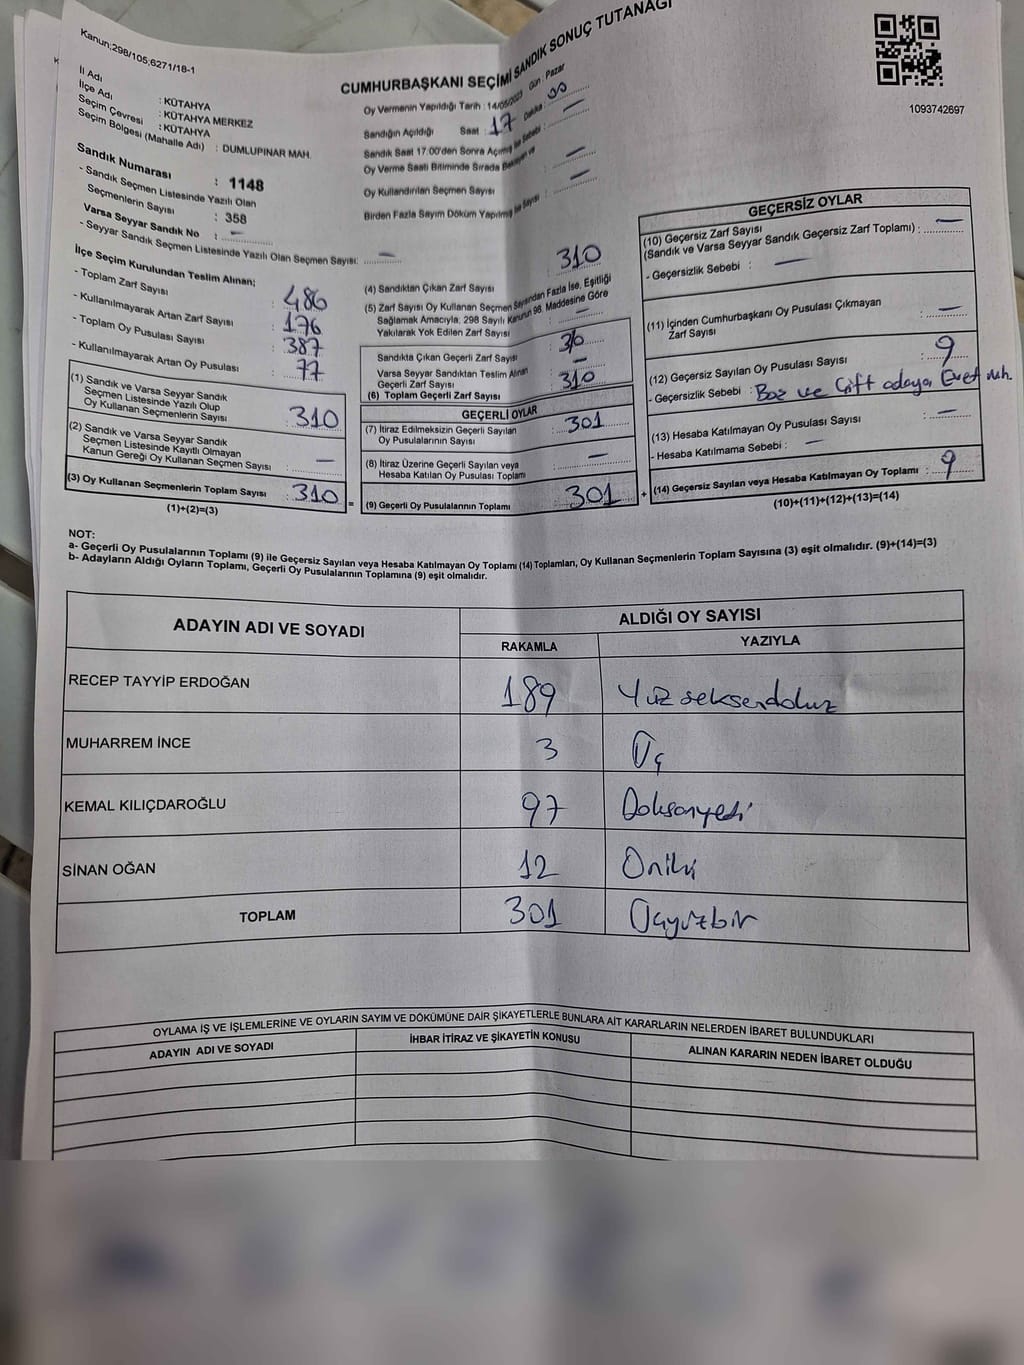 Kanun:298/105,6271/18-1
CUMHURBAŞKANI SEÇİMİ SANDIK SONUÇ TUTANAĞI
1093742697
İl Adı : KÜTAHYA
İlçe Adı : KÜTAHYA MERKEZ
Seçim Çevresi : KÜTAHYA
Seçim Bölgesi (Mahalle Adı) : DUMLUPINAR MAH.
Sandık Numarası : 1148
- Sandık Seçmen Listesinde Yazılı Olan
Seçmenlerin Sayısı : 358
Varsa Seyyar Sandık No : -
- Seyyar Sandık Seçmen Listesinde Yazılı Olan Seçmen Sayısı: -
İlçe Seçim Kurulundan Teslim Alınan;
- Toplam Zarf Sayısı : 486
- Kullanılmayarak Artan Zarf Sayısı : 176
- Toplam Oy Pusulası Sayısı : 387
- Kullanılmayarak Artan Oy Pusulası : 77
(1) Sandık ve Varsa Seyyar Sandık
Seçmen Listesinde Yazılı Olup
Oy Kullanan Seçmenlerin Sayısı : 310
(2) Sandık ve Varsa Seyyar Sandık
Seçmen Listesinde Kayıtlı Olmayan
Kanun Gereği Oy Kullanan Seçmen Sayısı : -
(3) Oy Kullanan Seçmenlerin Toplam Sayısı : 310
(1)+(2)=(3)
Oy Vermenin Yapıldığı Tarih : 14/05/2023 Gün : Pazar
Sandığın Açıldığı Saat : 17 Dakika : 00
Sandık Saat 17:00'den Sonra Açılmış İse Sebebi : -
Oy Verme Saati Bitiminde Sırada Bekleyen ve
Oy Kullandırılan Seçmen Sayısı : -
Birden Fazla Sayım Döküm Yapılmış İse Sayısı : -
(4) Sandıktan Çıkan Zarf Sayısı : 310
(5) Zarf Sayısı Oy Kullanan Seçmen Sayısından Fazla İse, Eşitliği
Sağlamak Amacıyla; 298 Sayılı Kanunun 98. Maddesine Göre
Yakılarak Yok Edilen Zarf Sayısı : -
Sandıkta Çıkan Geçerli Zarf Sayısı
Varsa Seyyar Sandıktan Teslim Alınan
Geçerli Zarf Sayısı : -
(6) Toplam Geçerli Zarf Sayısı : 310
GEÇERLİ OYLAR
(7) İtiraz Edilmeksizin Geçerli Sayılan
Oy Pusulalarının Sayısı : 301
(8) İtiraz Üzerine Geçerli Sayılan veya
Hesaba Katılan Oy Pusulası Toplam : -
(9) Geçerli Oy Pusulalarının Toplamı : 301
GEÇERSİZ OYLAR
(10) Geçersiz Zarf Sayısı
(Sandık ve Varsa Seyyar Sandık Geçersiz Zarf Toplamı) : -
- Geçersizlik Sebebi : -
(11) İçinden Cumhurbaşkanı Oy Pusulası Çıkmayan
Zarf Sayısı : -
(12) Geçersiz Sayılan Oy Pusulası Sayısı : 9
- Geçersizlik Sebebi : Boş ve Çift adaya Evet müh.
(13) Hesaba Katılmayan Oy Pusulası Sayısı : -
- Hesaba Katılmama Sebebi : -
(14) Geçersiz Sayılan veya Hesaba Katılmayan Oy Toplamı : 9
(10)+(11)+(12)+(13)=(14)
NOT:
a- Geçerli Oy Pusulalarının Toplamı (9) ile Geçersiz Sayılan veya Hesaba Katılmayan Oy Toplamı (14) Toplamları, Oy Kullanan Seçmenlerin Toplam Sayısına (3) eşit olmalıdır. (9)+(14)=(3)
b- Adayların Aldığı Oyların Toplamı, Geçerli Oy Pusulalarının Toplamına (9) eşit olmalıdır.
ADAYIN ADI VE SOYADI ALDIĞI OY SAYISI
RAKAMLA YAZIYLA
RECEP TAYYİP ERDOĞAN 189 Yüzseksendokuz
MUHARREM İNCE 3 Üç
KEMAL KILIÇDAROĞLU 97 Doksanyedi
SİNAN OĞAN 12 Oniki
TOPLAM 301 Üçyüzbir
OYLAMA İŞ VE İŞLEMLERİNE VE OYLARIN SAYIM VE DÖKÜMÜNE DAİR ŞİKAYETLERLE BUNLARA AİT KARARLARIN NELERDEN İBARET BULUNDUKLARI
ADAYIN ADI VE SOYADI İHBAR İTİRAZ VE ŞİKAYETİN KONUSU ALINAN KARARIN NEDEN İBARET OLDUĞU